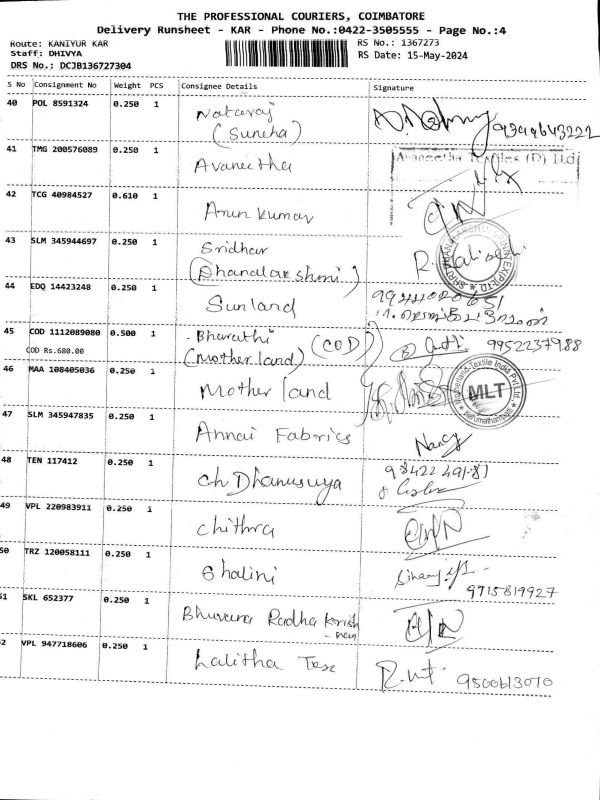 THE PROFESSIONAL COURIERS, COIMBATORE
Delivery Runsheet - KAR - Phone No.:0422-3505555 - Page No.:4
Route: KANIYUR KAR
RS No.: 1367273
Staff: DHIVYA
RS Date: 15-May-2024
DRS No.: DCJB136727304
S No Consignment No Weight PCS Consignee Details Signature
40 POL 8591324 0.250 1 Nataraj
(Suneha)
41 TMG 200576089 0.250 1 Avaneetha
Avaneetha (P) Ltd
42 TCG 40984527 0.610 1 Arun Kumar
43 SLM 345944697 0.250 1 Sridhar
(Dhanalakshmi)
44 EDQ 14423248 0.250 1 Sunland
45 COD 1112089080 0.500 1 Bharathi (COD) 9952237988
COD Rs.680.00 (Mother land)
46 MAA 108405036 0.250 1 Mother land
MLT
47 SLM 345947835 0.250 1 Annai Fabrics Nancy
48 TEN 117412 0.250 1 ch Dhanusuya
49 VPL 220983911 0.250 1 Chithra
50 TRZ 120058111 0.250 1 Shalini
9715819927
51 SKL 652377 0.250 1 Bhuvana Radha Krish
- nan
52 VPL 947718606 0.250 1 Lalitha Tex 9500613070